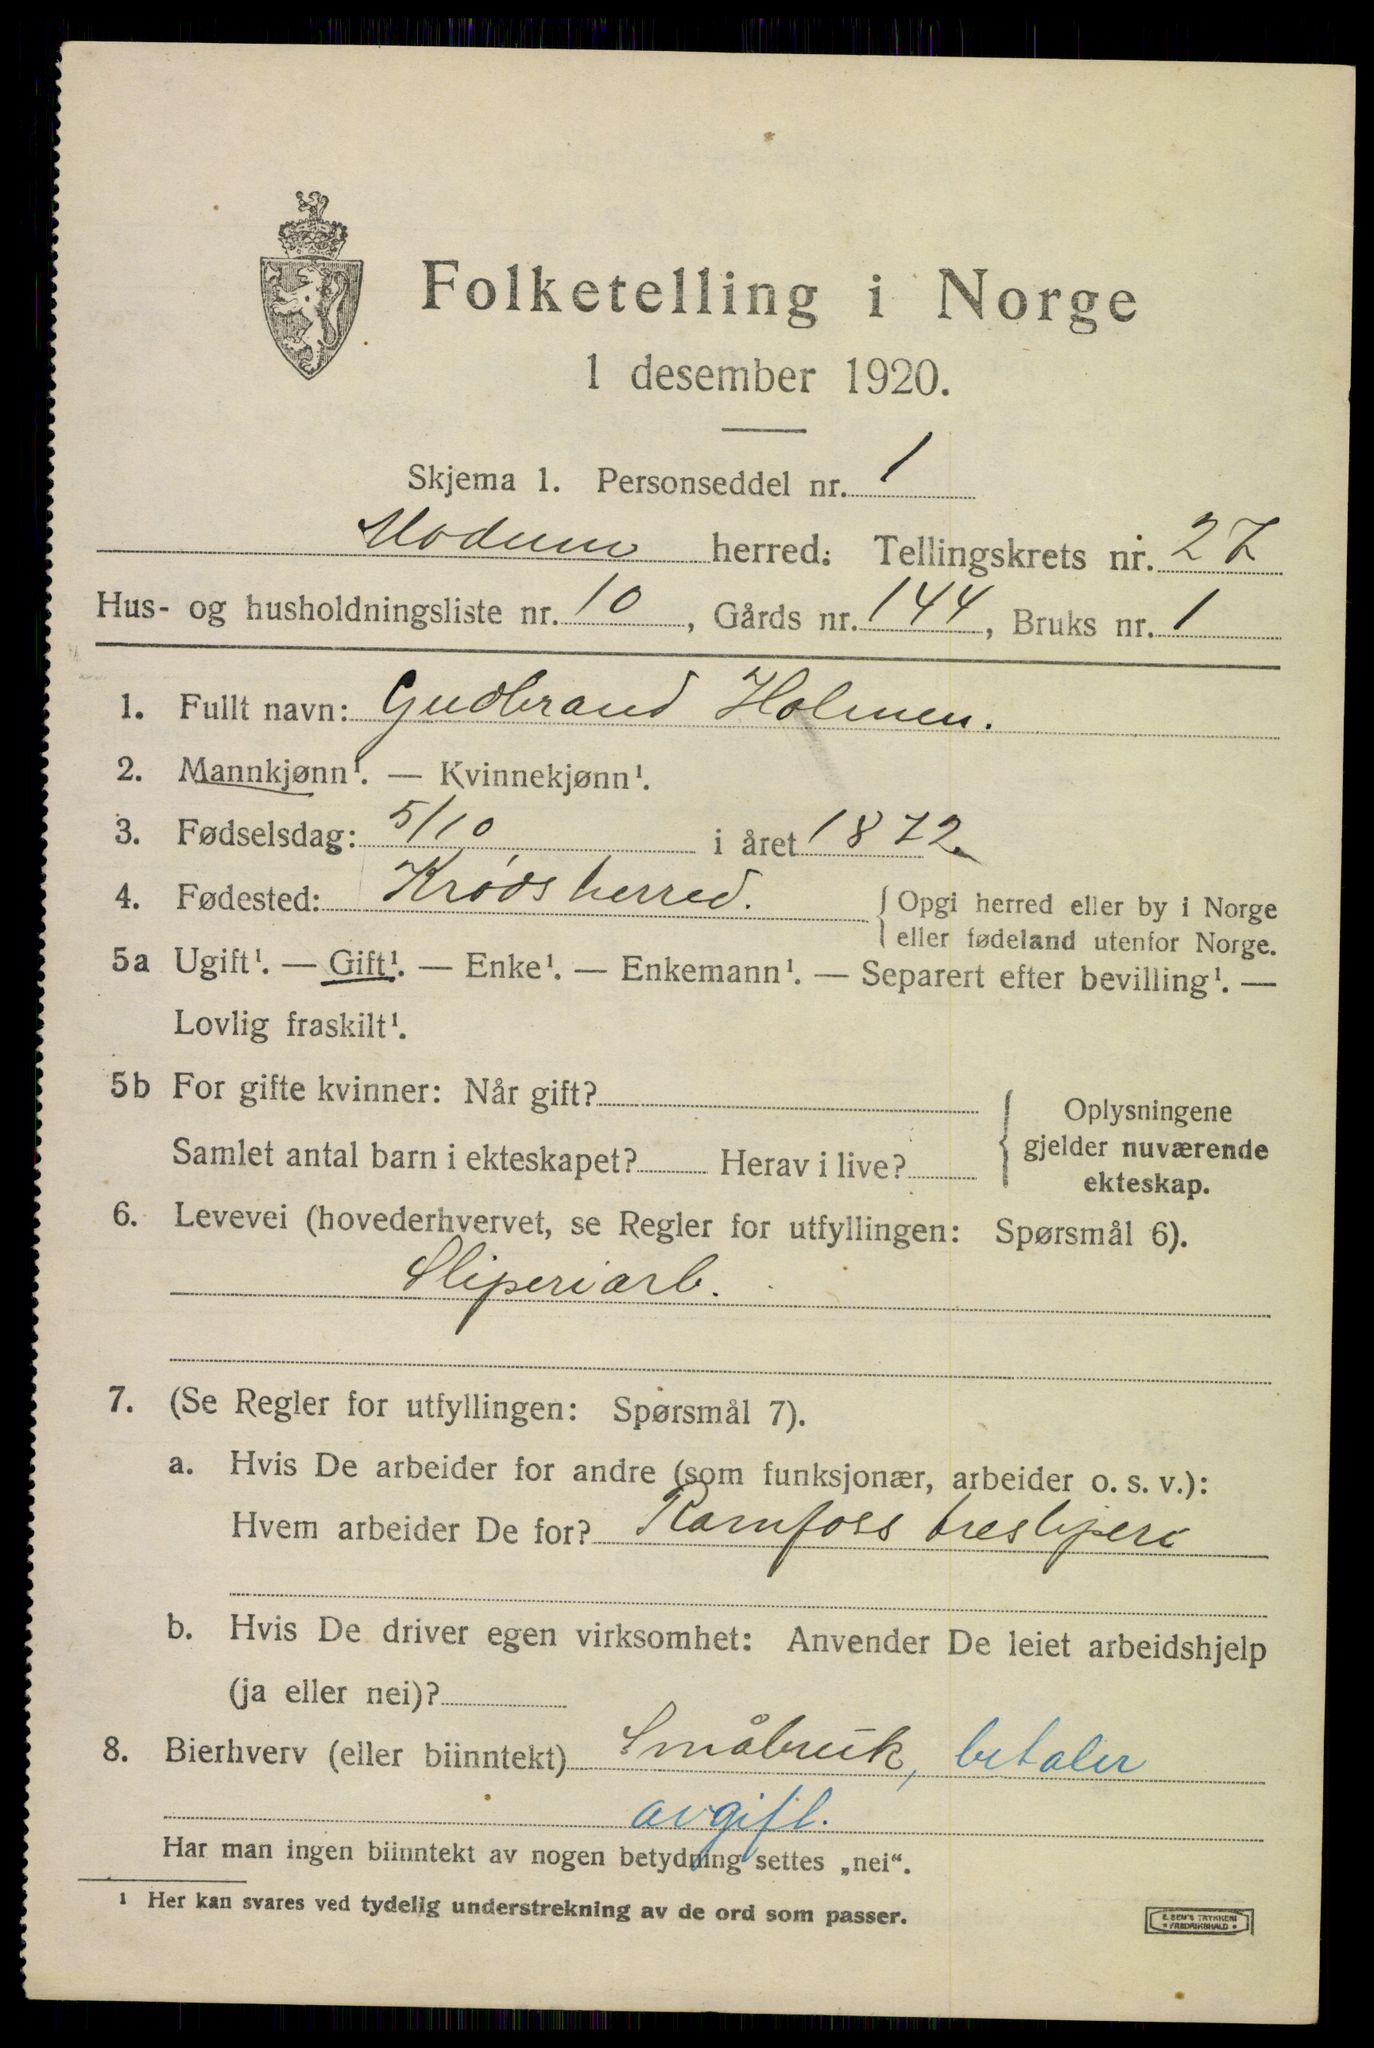 Folketelling i Norge
1 desember 1920.
Skjema 1. Personseddel nr. 1
Modum herred. Tellingskrets nr. 27
Hus- og husholdningsliste nr. 10, Gårds nr. 144, Bruks nr. 1
1. Fullt navn: Gudbrand Holmen.
2. Mannkjønn¹. — Kvinnekjønn¹.
3. Fødselsdag: 5/10 i året 1872.
4. Fødested: Krødsherred. { Opgi herred eller by i Norge
eller fødeland utenfor Norge.
5a Ugift¹. — Gift¹. — Enke¹. — Enkemann¹. — Separert efter bevilling¹. —
Lovlig fraskilt¹.
5b For gifte kvinner: Når gift?
Samlet antal barn i ekteskapet? Herav i live?
{ Oplysningene
gjelder nuværende
ekteskap.
6. Levevei (hovederhvervet, se Regler for utfyllingen: Spørsmål 6).
Sliperiarb.
7. (Se Regler for utfyllingen: Spørsmål 7).
a. Hvis De arbeider for andre (som funksjonær, arbeider o. s. v.):
Hvem arbeider De for? Ramfoss tresliperi
b. Hvis De driver egen virksomhet: Anvender De leiet arbeidshjelp
(ja eller nei)?
8. Bierhverv (eller biinntekt) Småbruk, betaler
avgift.
Har man ingen biinntekt av nogen betydning settes „nei“.
¹ Her kan svares ved tydelig understrekning av de ord som passer.
TRYKKERI
FREDRIKSHALD